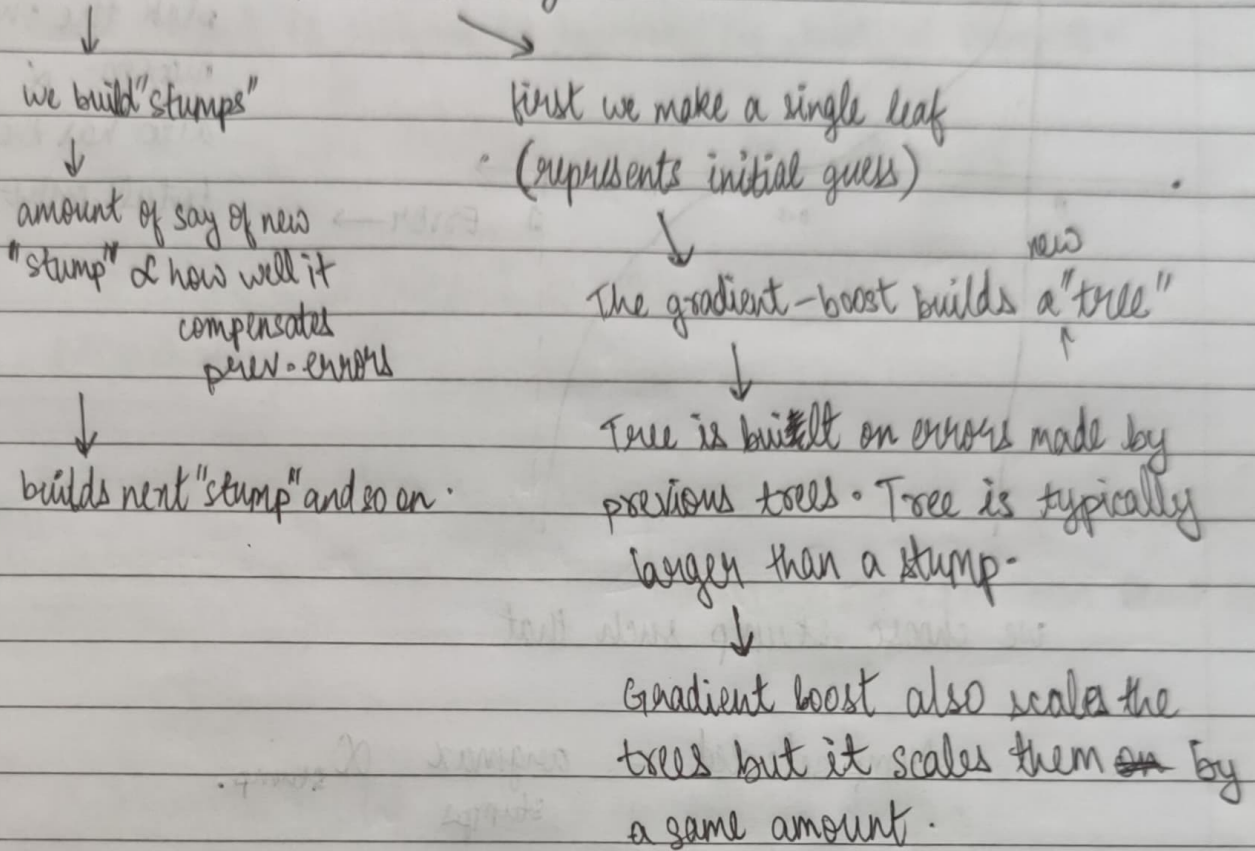 we build "stumps"
amount of say of new
"stump" ∝ how well it
compensates
prev. errors
builds next "stump" and so on.
first we make a single leaf
(represents initial guess)
new
The gradient-boost builds a "tree"
Tree is built on errors made by
previous trees. Tree is typically
larger than a stump.
Gradient boost also scales the
trees but it scales them by
a same amount.